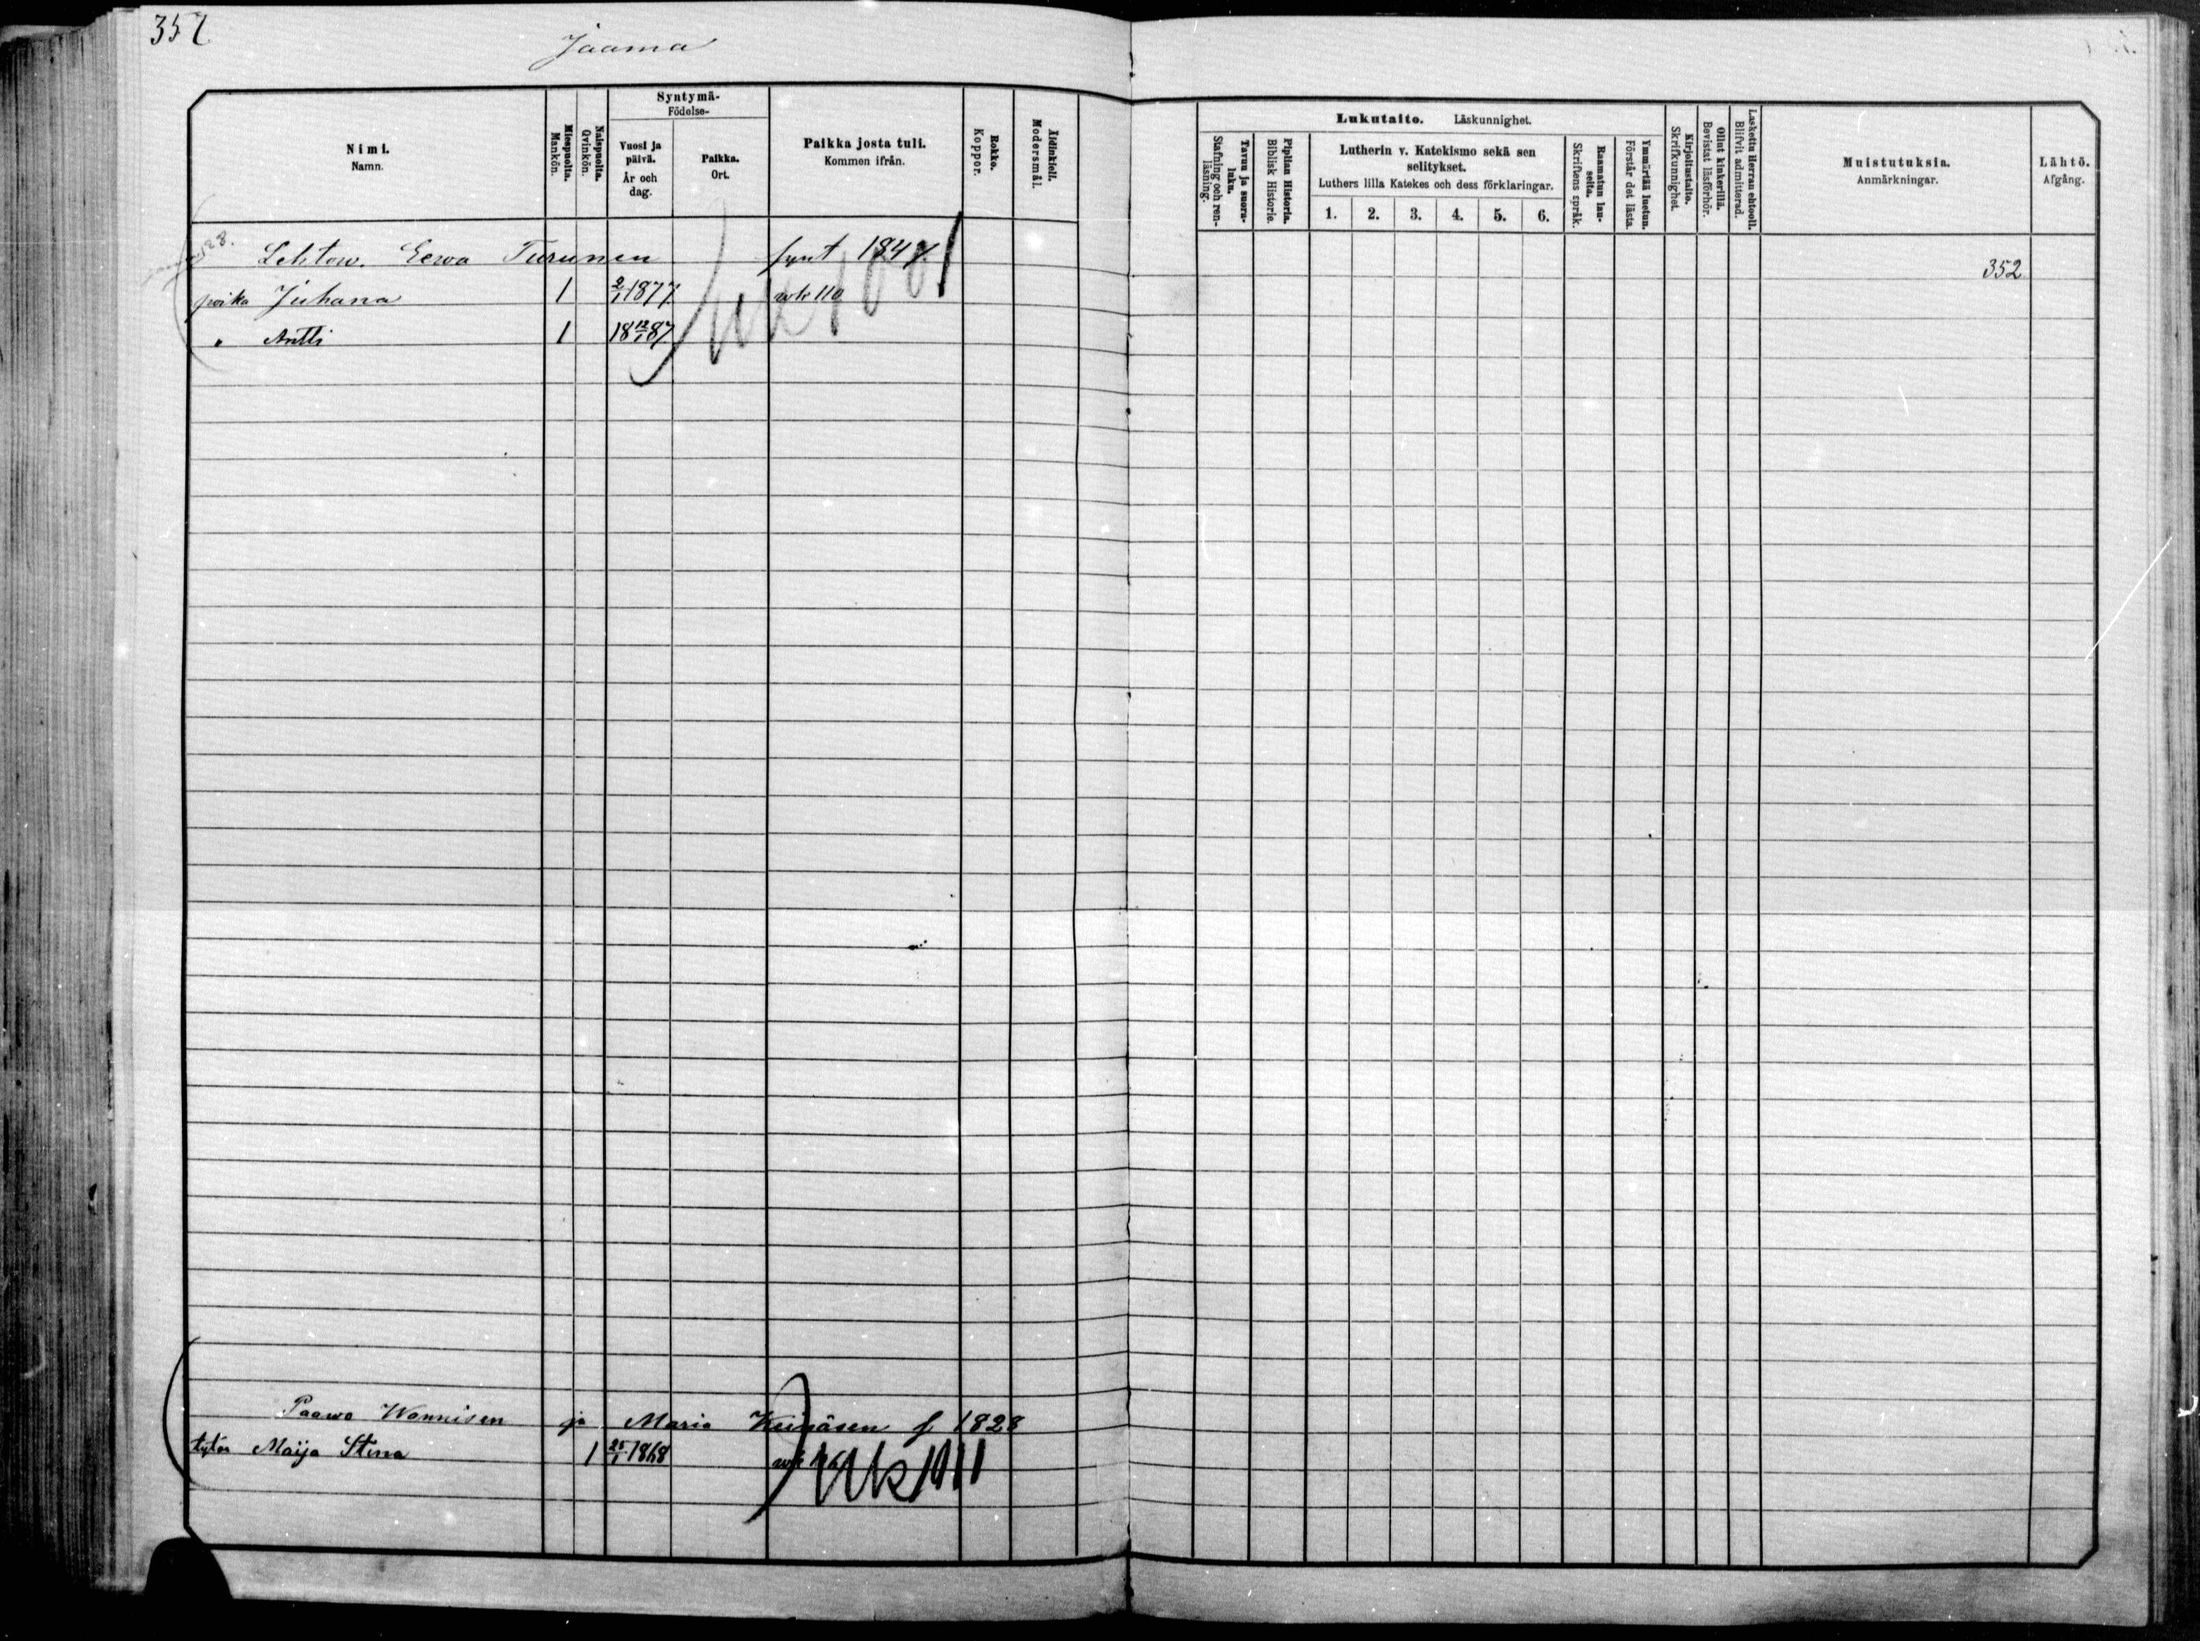 352
Jaama
Nimi.
Namn.
Miespuolia.
Mankön.
Naispuolia.
Qvinkön.
Syntymä-
Födelse-
Vuosi ja
päivä.
År och
dag.
Paikka.
Ort.
Paikka josta tuli.
Kommen ifrån.
Rokko.
Koppor.
Äidinkieli.
Modersmål.
Lehtow. Eewa Turunen synt 1847
poika Juhana 1 2/1 1877 wk 110
" Antti 1 18 12/1 87
Paawo Wannisen ja Maria Keinäsen f 1828
tytär Maija Stina 1 25/1 1868
Uk 1911
Lukutaito. Läskunnighet.
Tavuu ja suora-
luku.
Stafning och ren-
läsning.
Piplian Historia.
Biblisk Historie.
Lutherin v. Katekismo sekä sen
selitykset.
Luthers lilla Katekes och dess förklaringar.
1. 2. 3. 4. 5. 6.
Raamatun lau-
seita.
Skriftens språk.
Ymmärtää luetun.
Förstår det lästa.
Kirjoitustaito.
Skrifkunnighet.
Ollut kinkerillä.
Bevistat läsförhör.
Laskettu Herran ehtoolle.
Blifvit admitterad.
Muistutuksia.
Anmärkningar.
Lähtö.
Afgång.
352